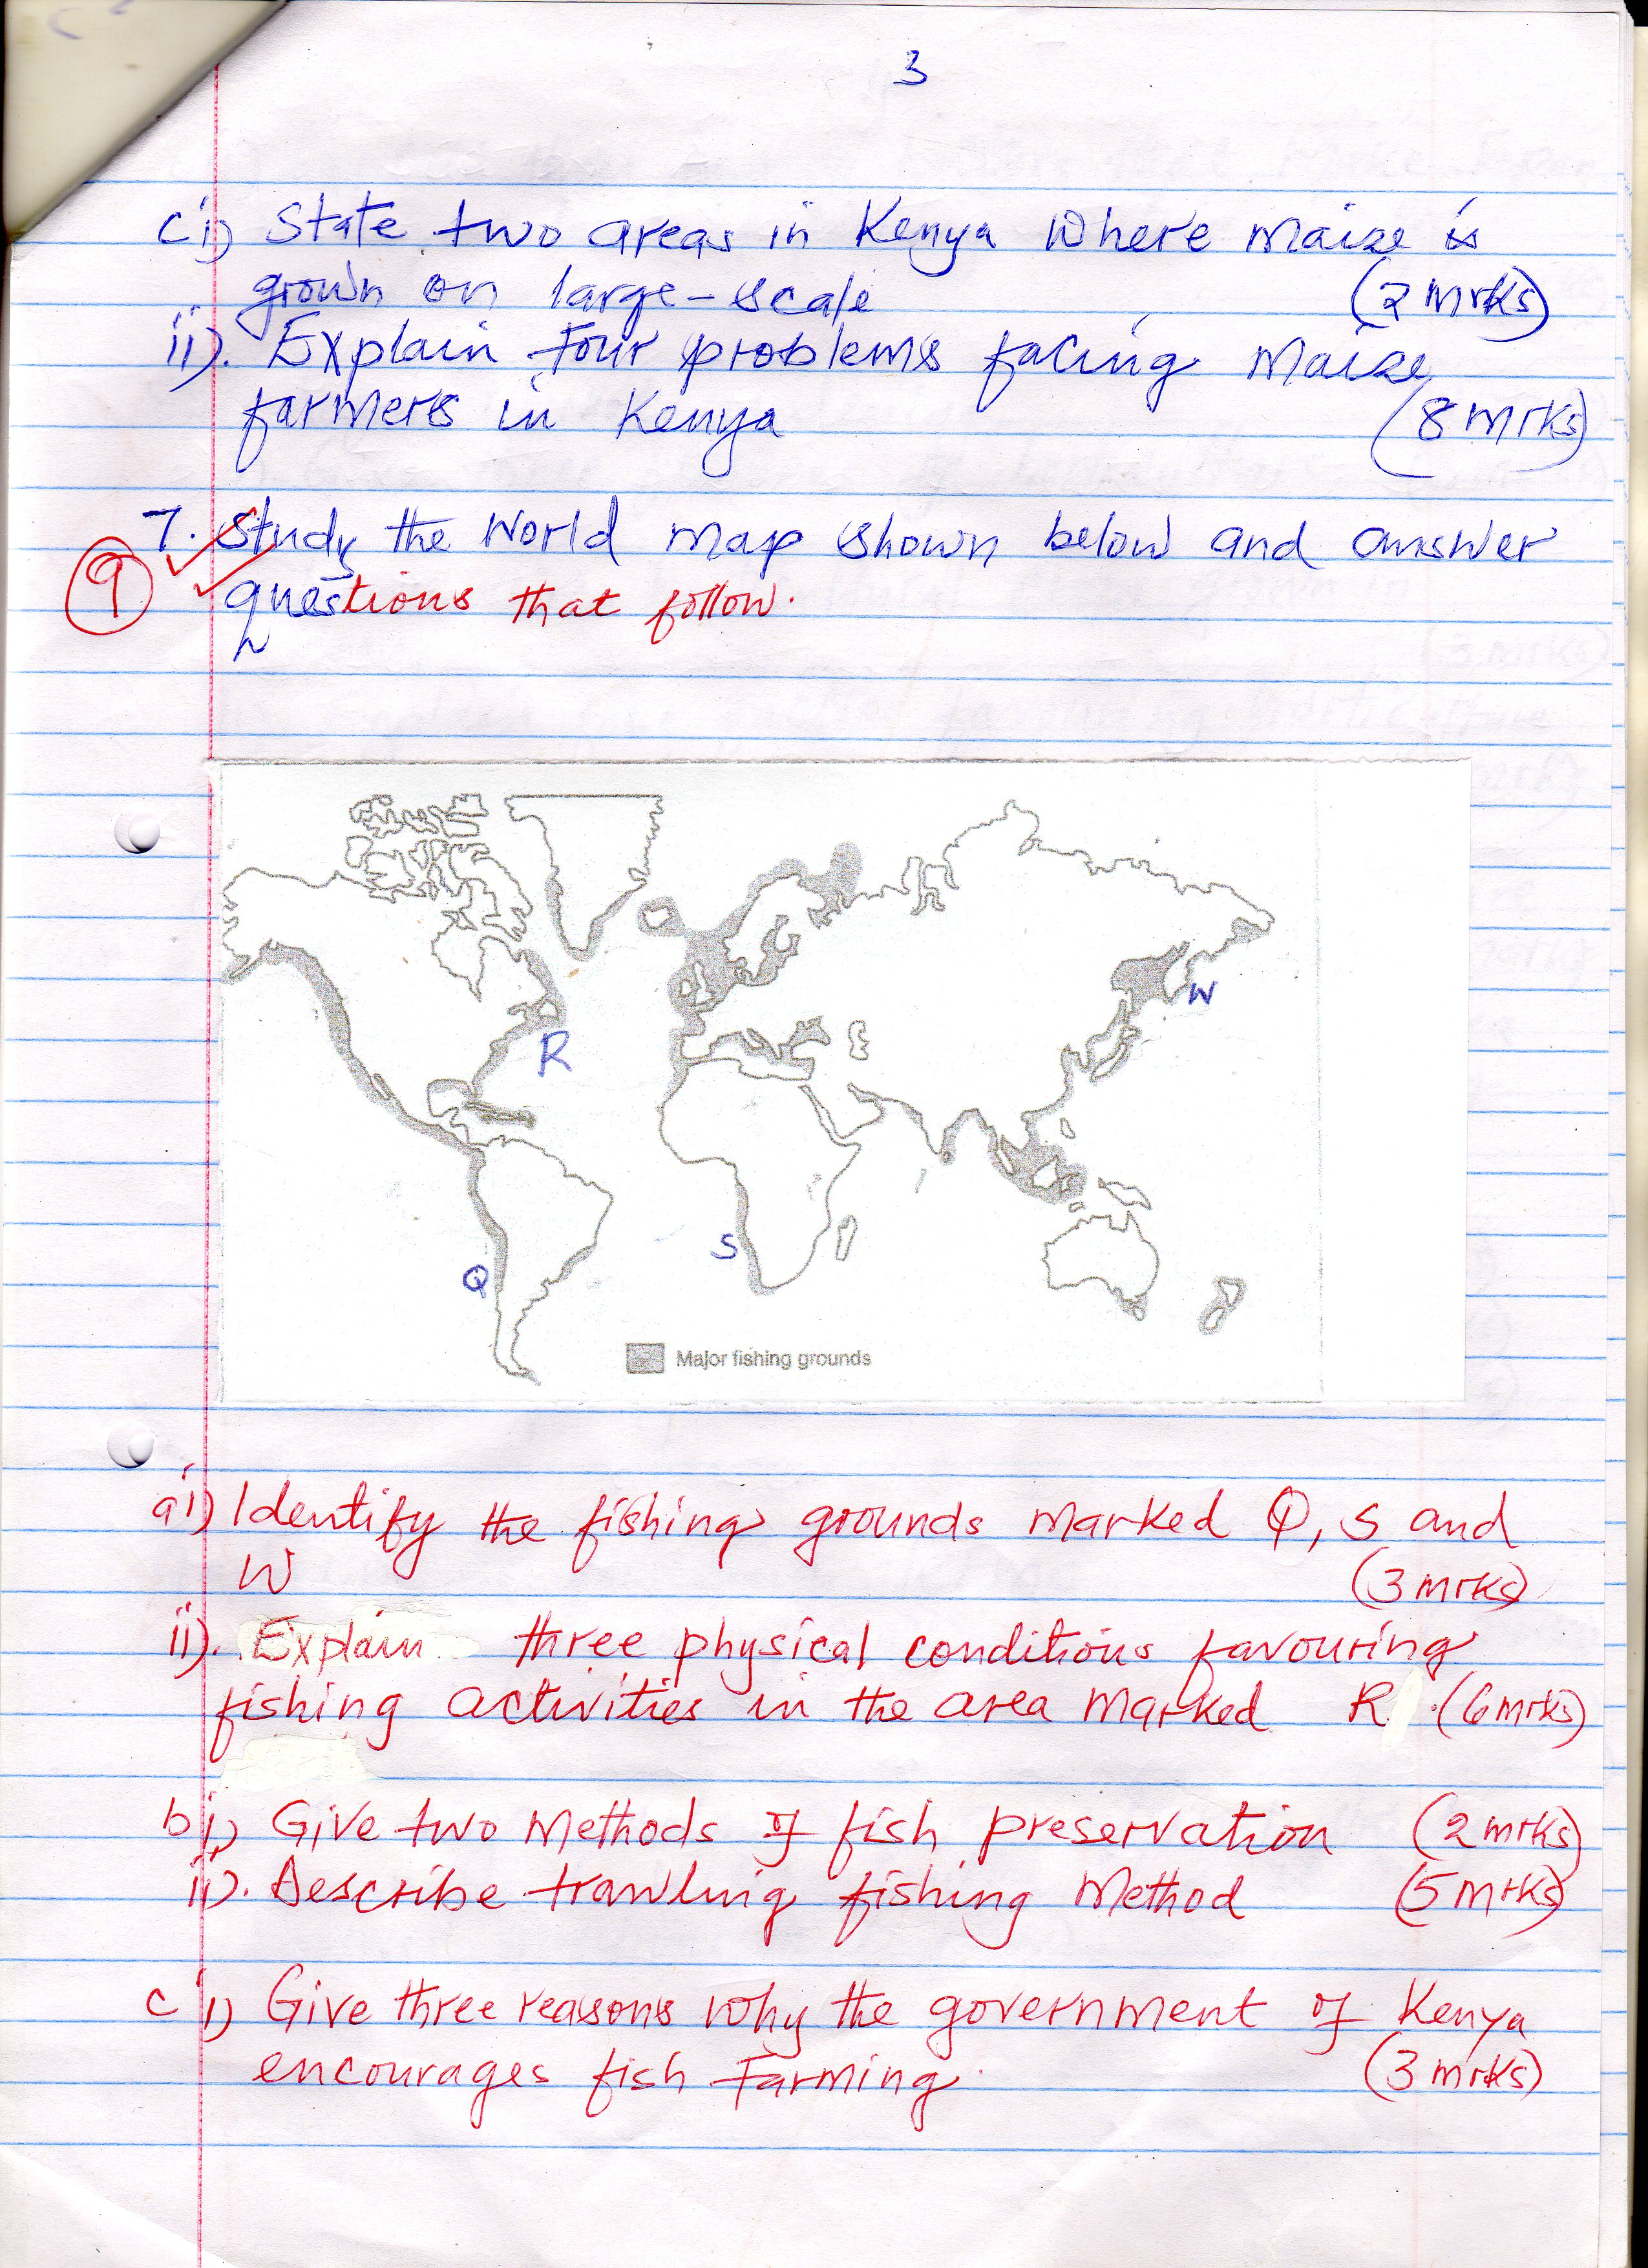 3
ci) State two areas in Kenya where maize is
grown on large-scale (2 mrks)
ii). Explain four problems facing maize
farmers in Kenya (8 mrks)
7. Study the World map shown below and answer
9 questions that follow.
R
W
S
Q
Major fishing grounds
ai) Identify the fishing grounds marked Q, S and
W (3 mrks)
ii). Explain three physical conditions favouring
fishing activities in the area marked R. (6 mrks)
bi) Give two methods of fish preservation (2 mrks)
ii). Describe trawling fishing method (5 mrks)
c i) Give three reasons why the government of Kenya
encourages fish farming. (3 mrks)